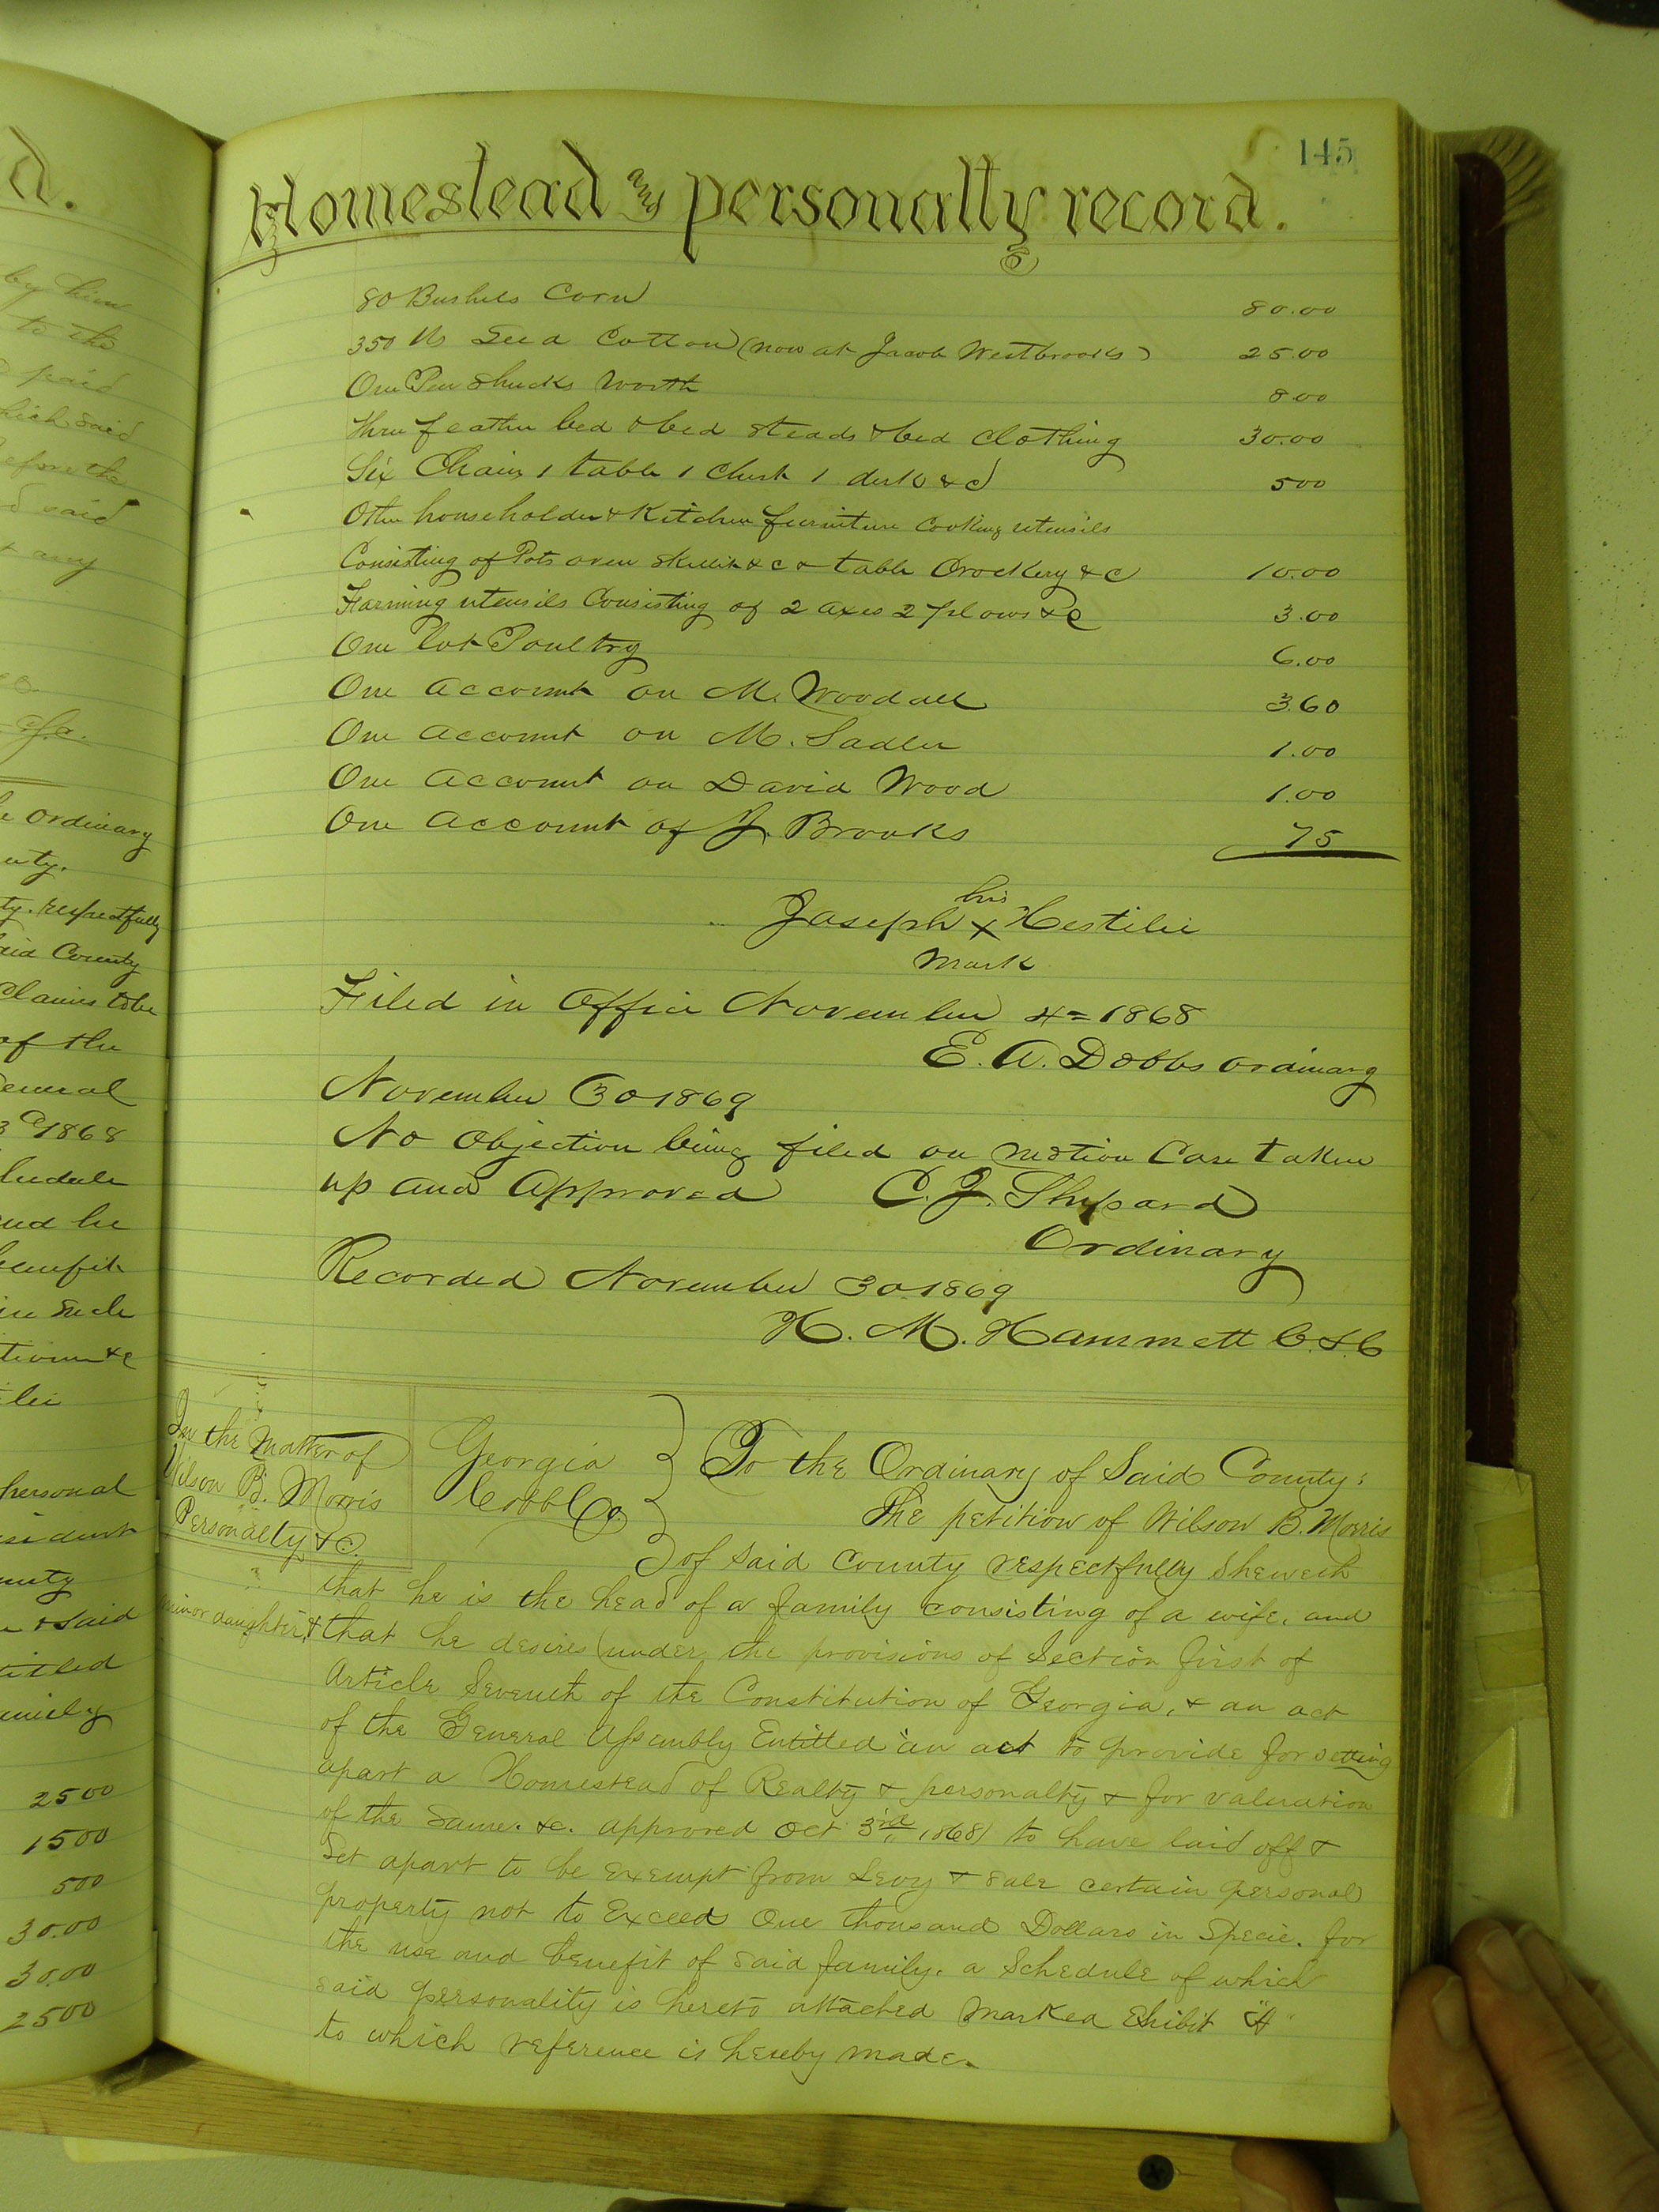 d.
by him
to the
paid
hich said
efore the
d said
t any
e Ordinary
unty.
ty. respectfully
aid County
Claims to be
of the
eneral
3d 1868
hedule
and he
benefit
in such
personal
sident
unty
& said
titled
amily
2500
1500
500
30.00
30.00
2500
145
Homestead and personalty record.
80 Bushels Corn 80.00
350 lbs Seed Cotton (now at Jacob Westbrooks) 25.00
One Pen Shucks Worth 8.00
Three feather bed & bed steads & bed clothing 30.00
Six Chairs 1 table 1 Chest 1 desk &c 500
Other householder & Kitchen furniture Cooking utensils
Consisting of Pots oven skillet &c & table Crockery &c 10.00
Farming utensils Consisting of 2 axes 2 plows &c 3.00
One lot Poultry 6.00
One Account on M. Woodall 3.60
One Account on M. Sadler 1.00
One Account on David Wood 1.00
One Account of J. Brooks 75
his
Joseph X Hestilie
Mark
Filed in Office November 4= 1868
E. A. Dobbs Ordinary
November 30 1869
No Objection being filed on Motion Case taken
up and Approved C. J. Shepard
Ordinary
Recorded November 30 1869
H. M. Hammett C.S.C
In the Matter of
Wilson B. Morris
Personalty &c.
Georgia
Cobb Co.
To the Ordinary of Said County:
The petition of Wilson B. Morris
of said County respectfully sheweth
that he is the head of a family consisting of a wife, and
minor daughter, & that he desires (under the provisions of Section first of
Article Seventh of the Constitution of Georgia, & an act
of the General Assembly Entitled "an act to provide for setting
apart a Homestead of Realty & personalty & for valuation
of the same. &c. approved Oct 3rd, 1868) to have laid off &
Set apart to be exempt from Levy & sale certain personal
property not to Exceed One thousand Dollars in Specie. for
the use and benefit of said family. a Schedule of which
said personality is hereto attached Marked Exhibit "A"
to which reference is hereby made.